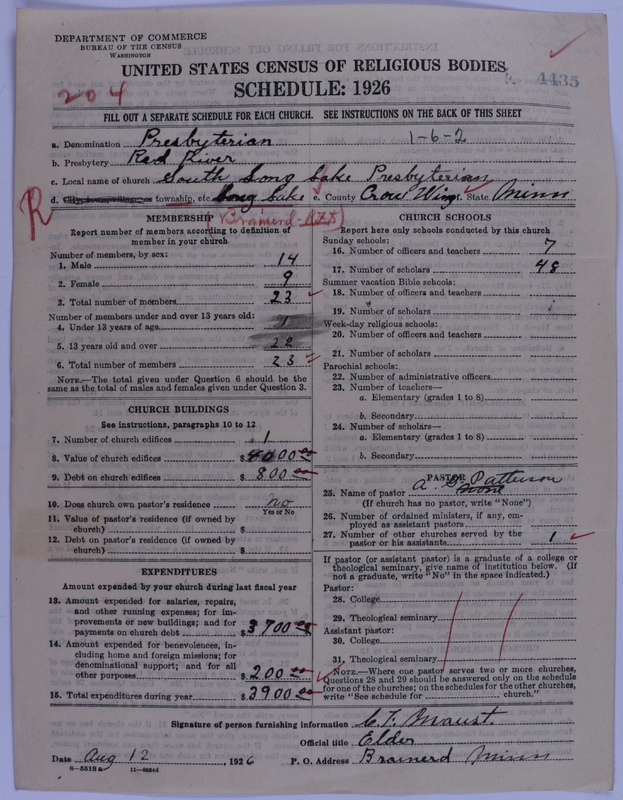 DEPARTMENT OF COMMERCE
BUREAU OF THE CENSUS
WASHINGTON
UNITED STATES CENSUS OF RELIGIOUS BODIES
4435
204
SCHEDULE: 1926
FILL OUT A SEPARATE SCHEDULE FOR EACH CHURCH. SEE INSTRUCTIONS ON THE BACK OF THIS SHEET
a. Denomination Presbyterian 1-6-2
b. Presbytery Red River
c. Local name of church South Long Lake Presbyterian
R d. township, etc. Long Lake e. County Crow Wing f. State Minn
MEMBERSHIP Brainerd
Report number of members according to definition of
member in your church
Number of members, by sex:
1. Male 14
2. Female 9
3. Total number of members 23
Number of members under and over 13 years old:
4. Under 13 years of age 1
5. 13 years old and over 22
6. Total number of members 23
NOTE.—The total given under Question 6 should be
same as the total of males and females given under Question 3.
CHURCH BUILDINGS
See instructions, paragraphs 10 to 12
7. Number of church edifices 1
8. Value of church edifices $4000.00
9. Debt on church edifices $800.00
10. Does church own pastor's residence no
Yes or No
11. Value of pastor's residence (if owned by
church) $
12. Debt on pastor's residence (if owned by
church) $
EXPENDITURES
Amount expended by your church during last fiscal year
13. Amount expended for salaries, repairs,
and other running expenses; for im-
provements or new buildings; and for
payments on church debt $3700.00
14. Amount expended for benevolences, in-
cluding home and foreign missions; for
denominational support; and for all
other purposes $200.00
15. Total expenditures during year $3900.00
CHURCH SCHOOLS
Report here only schools conducted by this church
Sunday schools:
16. Number of officers and teachers 7
17. Number of scholars 48
Summer vacation Bible schools:
18. Number of officers and teachers
19. Number of scholars
Week-day religious schools:
20. Number of officers and teachers
21. Number of scholars
Parochial schools:
22. Number of administrative officers
23. Number of teachers—
a. Elementary (grades 1 to 8)
b. Secondary
24. Number of scholars—
a. Elementary (grades 1 to 8)
b. Secondary
PASTOR
25. Name of pastor Patterson
(If church has no pastor, write "None")
26. Number of ordained ministers, if any, em-
ployed as assistant pastors
27. Number of other churches served by the
pastor or his assistants 1
If pastor (or assistant pastor) is a graduate of a college or
theological seminary, give name of institution below. (If
not a graduate, write "No" in the space indicated.)
Pastor:
28. College
29. Theological seminary
Assistant pastor:
30. College
31. Theological seminary
NOTE.—Where one pastor serves two or more churches,
Questions 28 and 29 should be answered only on the schedule
for one of the churches; on the schedules for the other churches,
write "See schedule for church."
Signature of person furnishing information C. T. Maust.
Official title Elder
Date Aug 12, 1926 P. O. Address Brainerd Minn
8—5518 a 11—9054d